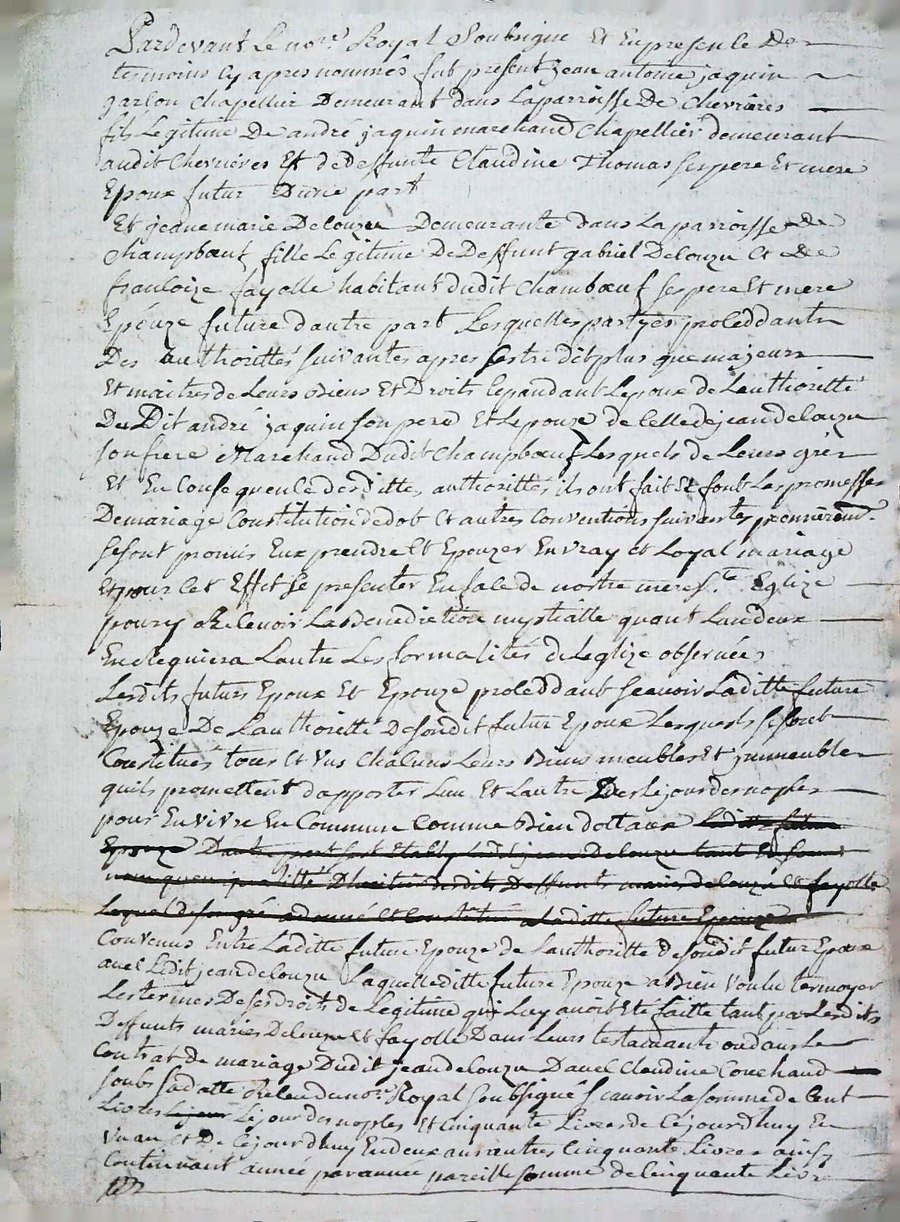 Pardevant Le nore Royal Soubsigné Et En presence Des
temoins Cy apres nommés fut present jean antoine jaquin
garson chapellier Demeurant dans La parroisse De Chevrieres
fils Legitime De andré jaquin marchand Chapellier demeurant
audit Chevrieres Et de Deffunte Claudine Thomas ses pere Et mere
Epoux futur D'une part
Et jeane marie Delouzu Demeurante dans La parroisse de
Champbœuf fille Legitime De Deffunt gabriel Delouzu Et De
francoize fayolle habitant dudit Chambœuf ses pere Et mere
Epouze future d'autre part Lesquelles partyes proceddants
Des authorittés suivantes apres sestre dit plus que majeurs
Et maitres de Leurs Biens Et Droits Cepandant Lepoux de Lauthoritté
Du Dit andré jaquin son pere Et Lepouze de Celle de jean delouzu
son frere Marchand Dudit Champbœuf Lesquels de Leurs grés
Et En Consequence desdittes authorittés ils ont fait Et font Les promesses
De mariage Constitution de dot Et autres Conventions suivantes premieremt.
se sont promis Eux prendre Et Epouzer En vray et Loyal mariage
Et pour Cet Effet se presenter En face de nostre mere ste Eglize
pour y Recevoir La Benediction nuptialle quant Lun deux
En Requiera Lautre Les formalités de Leglize observées
Lesdits futurs Epoux Et Epouze proceddant scavoir Laditte future
Epouze De Lauthoritté De sondit futur Epoux Lesquels se sont
Constitués tous Et Uns Chacuns Leurs Biens meubles Et immeubles
quils promettent d'apporter Lun Et Lautre Des le jour des nopces
pour En vivre En Commun Comme Bien dottaux Laditte future
Epouze Dautre part sest Etably Ledit jean Delouzu tant En son
nom quen qualitté D'heritier desdits Deffunts mariés delouzu Et fayolle
Lequel de son gré a donné et Constitué a Laditte future Epouze
Convenus Entre Laditte future Epouze de Lauthoritté de sondit futur Epoux
avec Ledit jean delouzu Laquelleditte future Epouze a Bien voulu termoyer
Les termes De ses droits de Legitime qui Luy avoit Eté faitte tant par Lesdits
Deffunts mariés Delouzu Et fayolle Dans Leurs testaments ou dans Le
Contrat de mariage Dudit jean delouzu D'avec Claudine Couchaud
soubs sa datte Receu du nore Royal soubsigné scavoir La somme de Cent
Livres Le jour des nopces Et Cinquante Livres de Cejourdhuy En
Un an Et De Cejourdhuy En deux ans autres Cinquante Livres ainsy
Continuant année par année pareille somme de Cinquante Livres